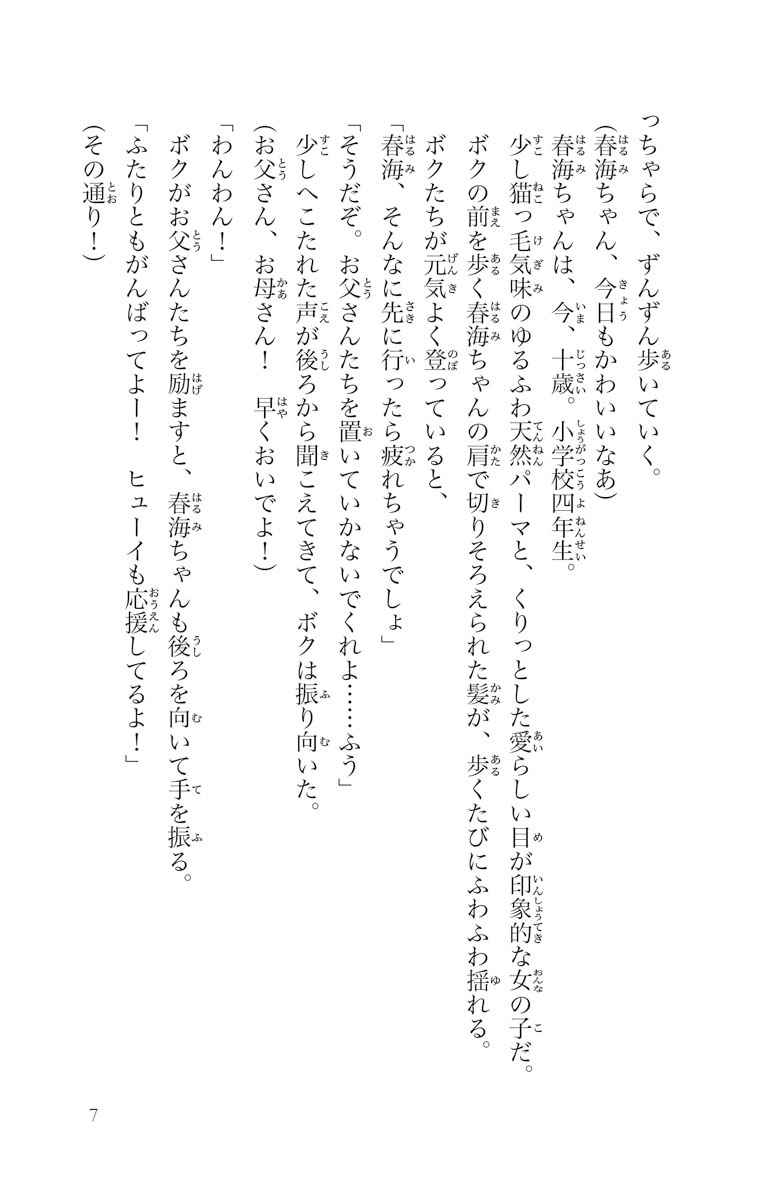 っちゃらで、ずんずん歩いていく。
(春海ちゃん、今日もかわいいなあ)
春海ちゃんは、今、十歳。小学校四年生。
少し猫っ毛気味のゆるふわ天然パーマと、くりっとした愛らしい目が印象的な女の子だ。
ボクの前を歩く春海ちゃんの肩で切りそろえられた髪が、歩くたびにふわふわ揺れる。
ボクたちが元気よく登っていると、
「春海、そんなに先に行ったら疲れちゃうでしょ」
「そうだぞ。お父さんたちを置いていかないでくれよ……ふう」
少しへこたれた声が後ろから聞こえてきて、ボクは振り向いた。
(お父さん、お母さん！　早くおいでよ！)
「わんわん！」
ボクがお父さんたちを励ますと、春海ちゃんも後ろを向いて手を振る。
「ふたりともがんばってよー！　ヒューイも応援してるよ！」
(その通り！)
7